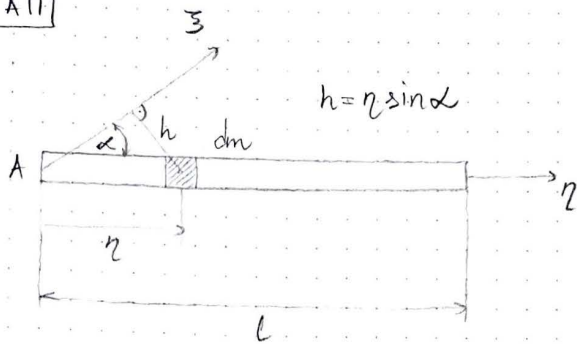 A11
ξ
h = η sinα
h
dm
α
A
η
η
l